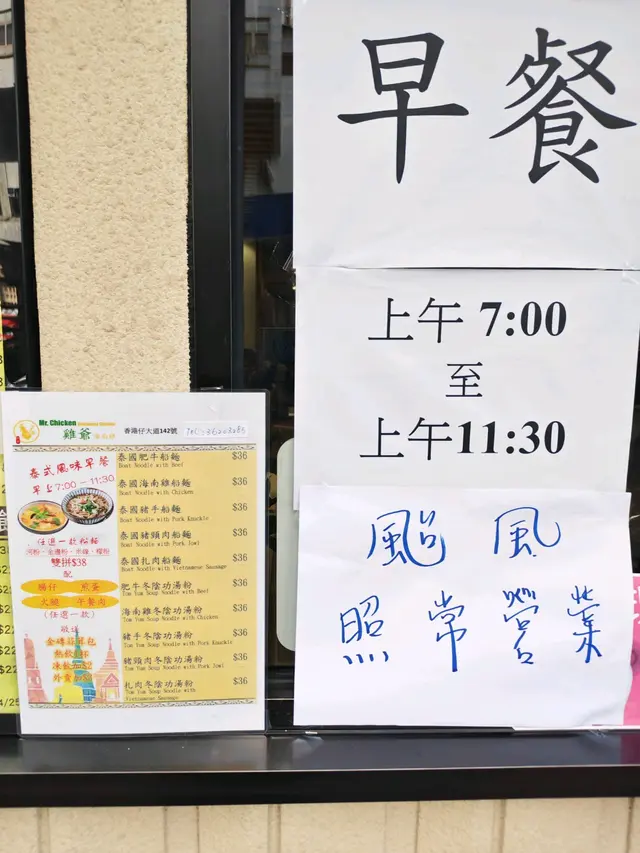 早餐
上午 7:00
至
上午11:30
颱風
照常營業
Mr. Chicken
雞爺
香港仔大道142號
泰式風味早餐
早上7:00-11:30
任選一款粉麵
河粉、金邊粉、米線、檬粉
雙拼$38
配
腸仔 煎蛋
火腿 午餐肉
(任選一款)
泰國肥牛船麵 $36
Boat Noodle with Beef
泰國海南雞船麵 $36
Boat Noodle with Chicken
泰國豬手船麵 $36
Boat Noodle with Pork Knuckle
泰國豬頸肉船麵 $36
Boat Noodle with Pork Jowl
泰國扎肉船麵 $36
Boat Noodle with Vietnamese Sausage
肥牛冬陰功湯粉 $36
Tom Yum Soup Noodle with Beef
海南雞冬陰功湯粉 $36
Tom Yum Soup Noodle with Chicken
豬手冬陰功湯粉 $36
Tom Yum Soup Noodle with Pork Knuckle
豬頸肉冬陰功湯粉 $36
Tom Yum Soup Noodle with Pork Jowl
扎肉冬陰功湯粉 $36
Tom Yum Soup Noodle with
Vietnamese Sausage